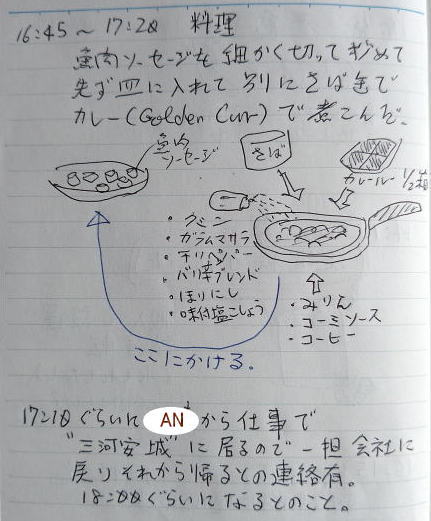 16:45 ~ 17:20 料理
魚肉ソーセージを細かく切って炒めて
先ず皿に入れて別にさば缶で
カレー(Golden Curry)で煮こんだ。
魚肉
ソーセージ
さば
カレールー 1/2箱
・クミン
・ガラムマサラ
・チリペパー
・バリ辛ブレンド
・ほりにし
・味付塩こしょう
・みりん
・コーミソース
・コーヒー
ここにかける。
17:10ぐらいにANから仕事で
"三河安城"に居るので一担会社に
戻りそれから帰るとの連絡有。
18:00ぐらいになるとのこと。